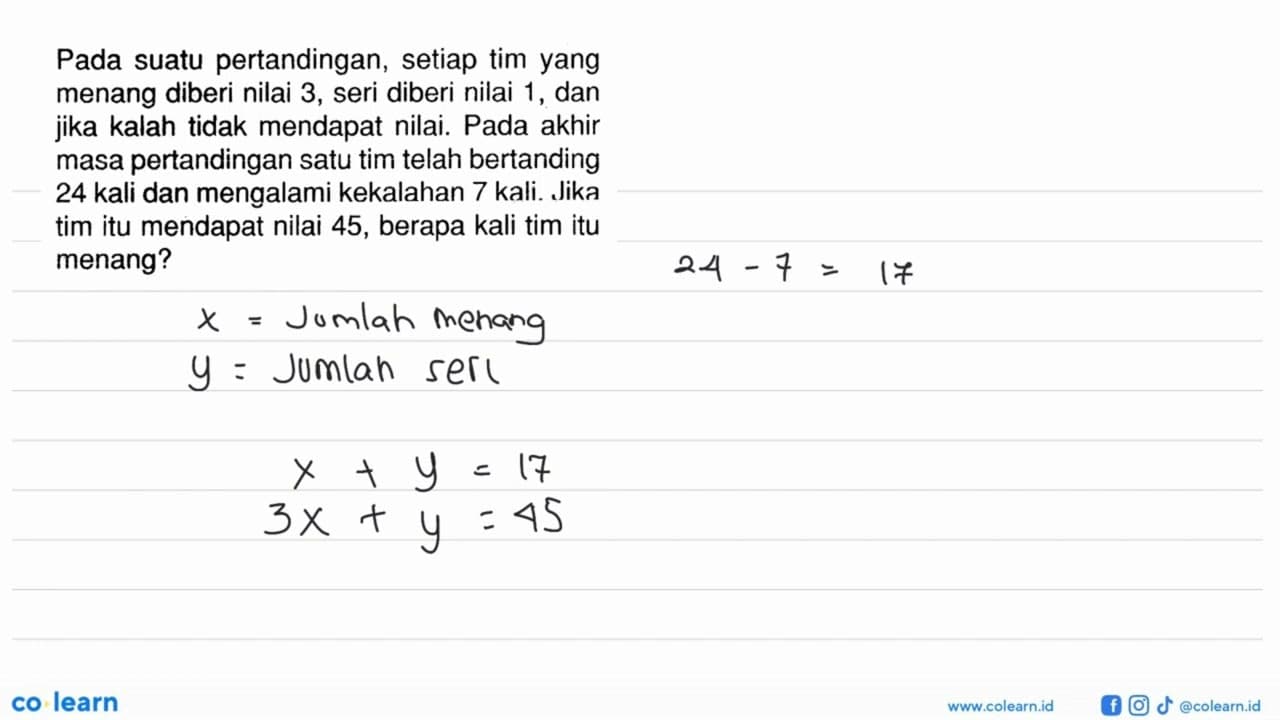 Pada suatu pertandingan, setiap tim yang
menang diberi nilai 3, seri diberi nilai 1, dan
jika kalah tidak mendapat nilai. Pada akhir
masa pertandingan satu tim telah bertanding
24 kali dan mengalami kekalahan 7 kali. Jika
tim itu mendapat nilai 45, berapa kali tim itu
menang?
24 - 7 = 17
x = Jumlah menang
y = Jumlah seri
x + y = 17
3x + y = 45
co learn
www.colearn.id
@colearn.id